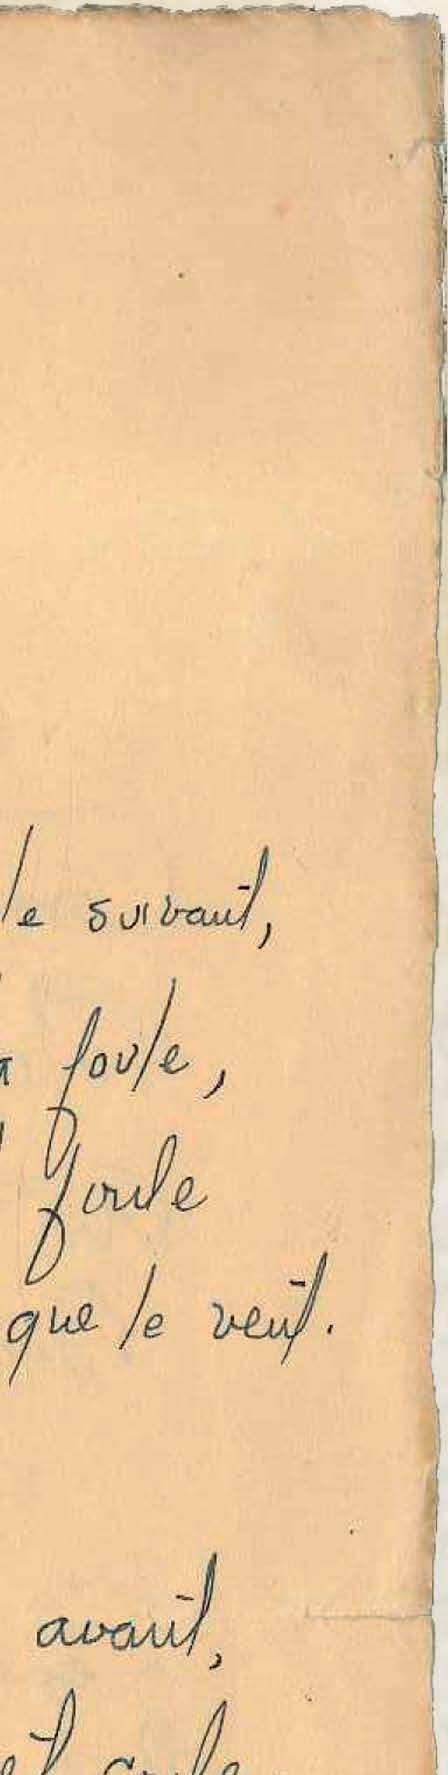 le suivant,
a foule,
foule
que le vent.
avant,